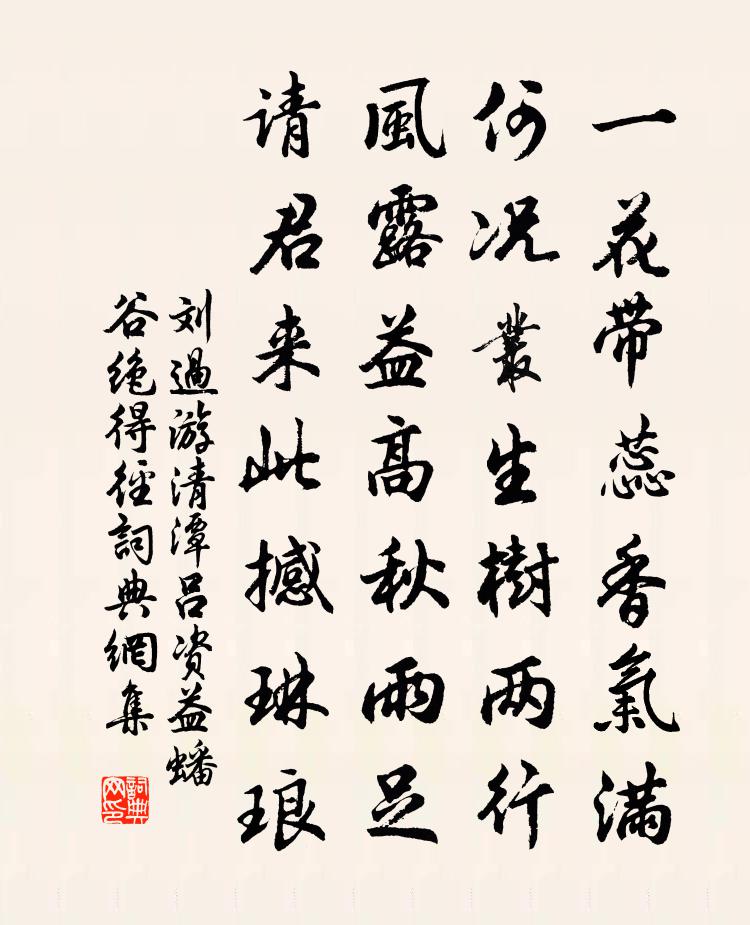 一花带蕊香氣满
何况叢生樹两行
風露益高秋雨足
请君来此撼琳琅
刘過游清潭吕资益蟠
谷绝得径詞典網集
詞典网印